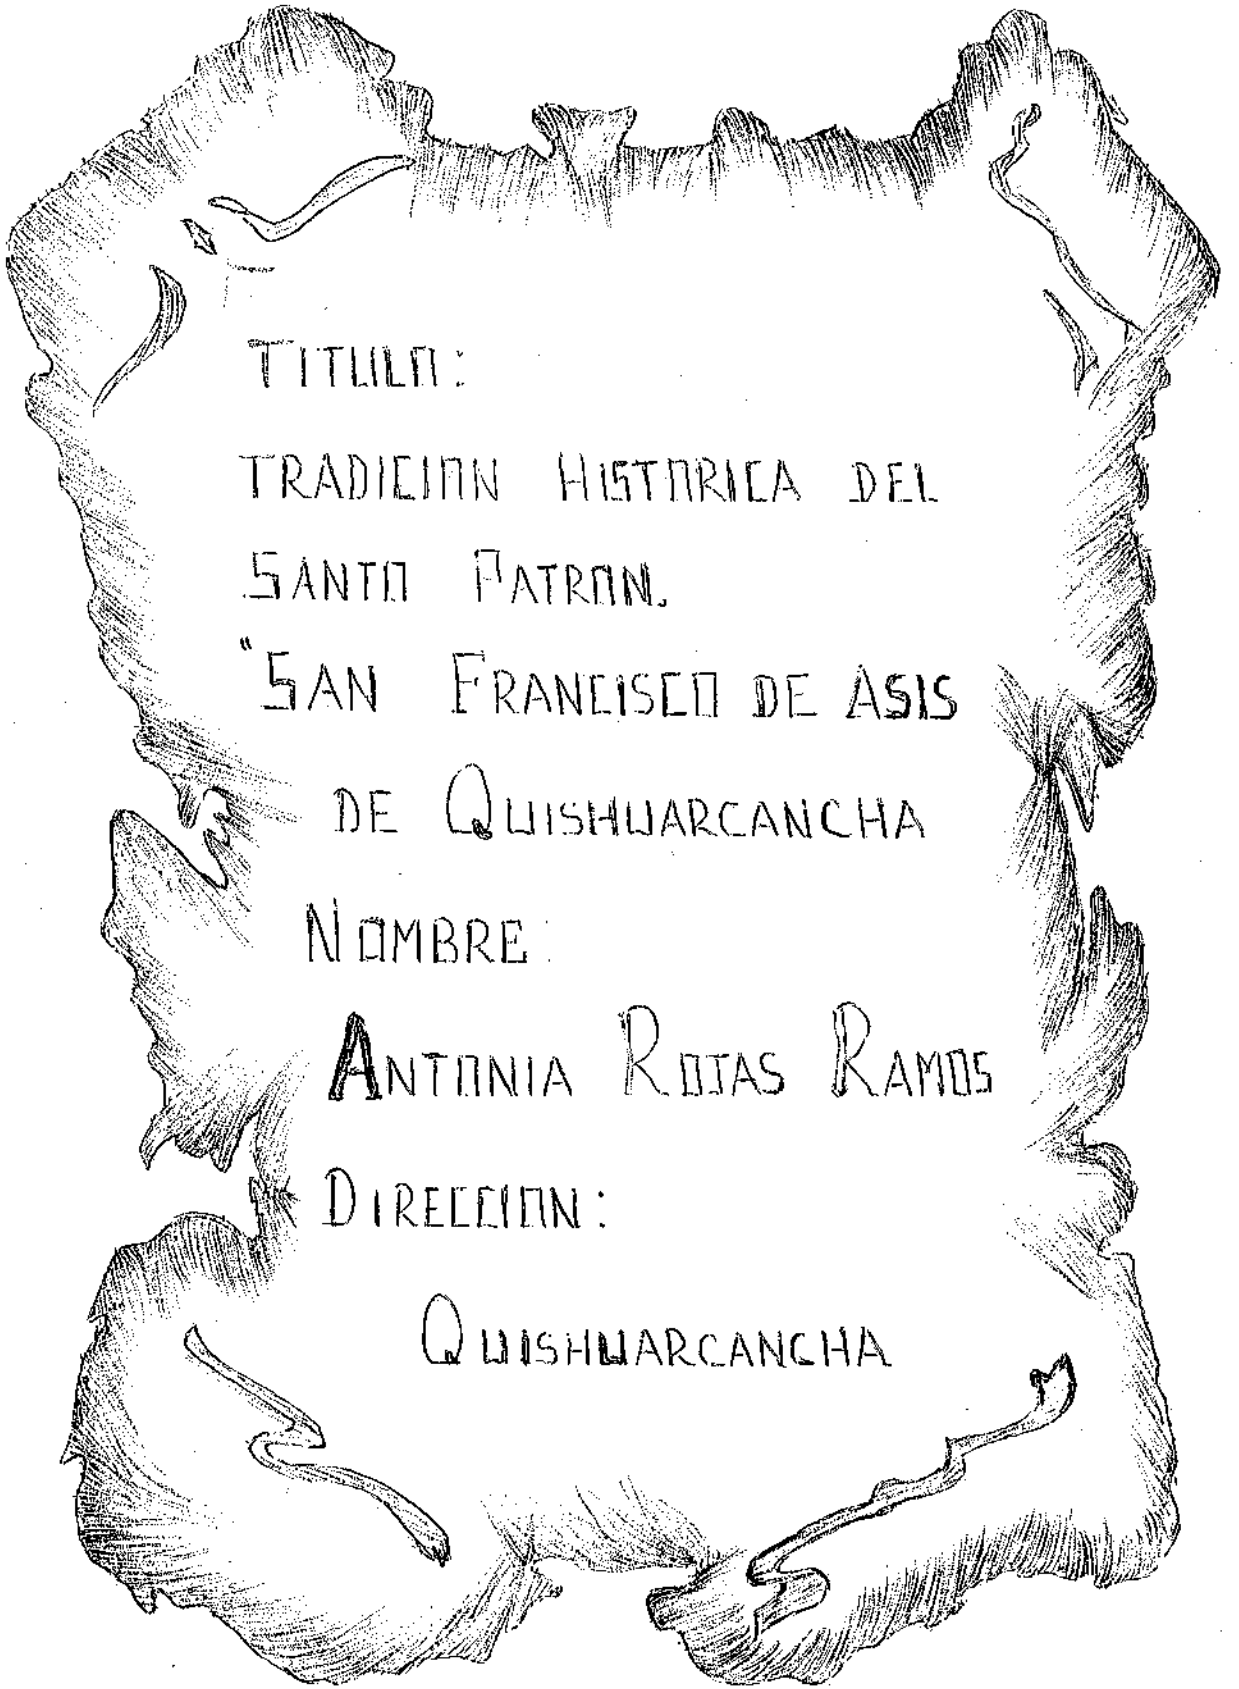 TITULO:
TRADICION HISTORICA DEL
SANTO PATRON.
"SAN FRANCISCO DE ASIS
DE QUISHUARCANCHA
NOMBRE:
ANTONIA ROJAS RAMOS
DIRECCION:
QUISHUARCANCHA